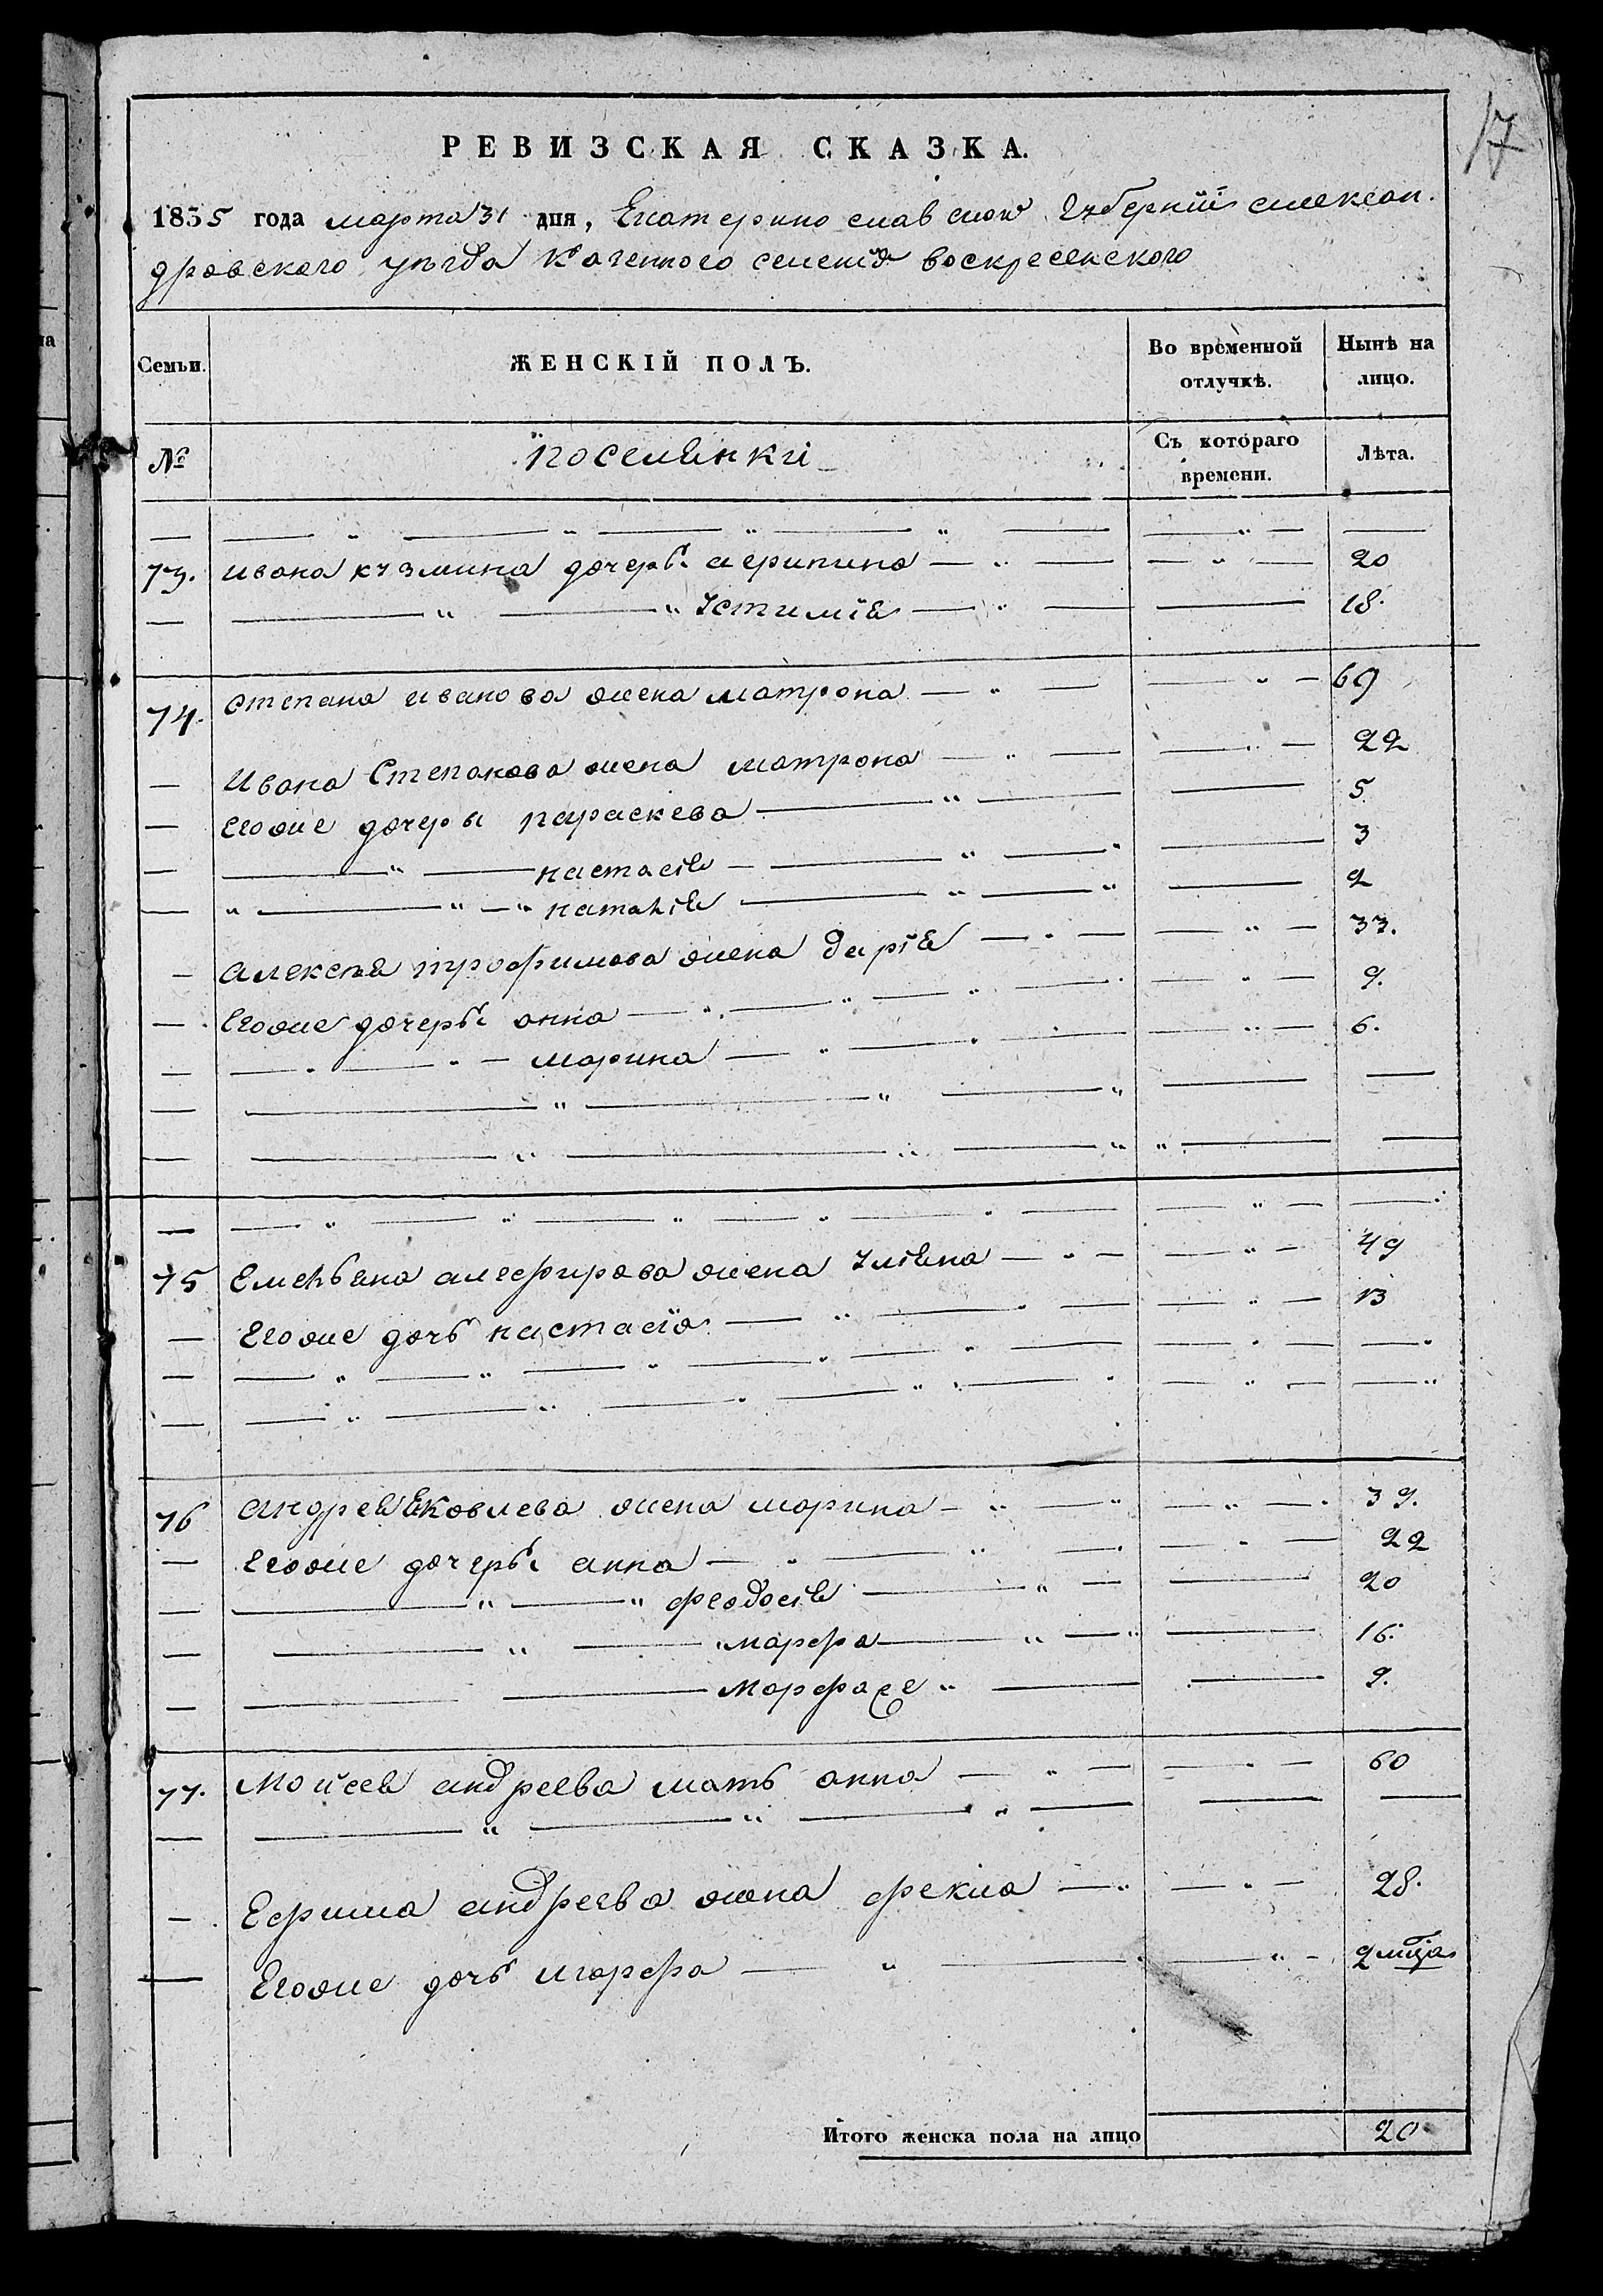 17
РЕВИЗСКАЯ СКАЗКА.
1835 года марта 31 дня, Екатеринославской Губернiи алексан.
дровского уѣзда Казенного селенiя воскресенского
Семьи. ЖЕНСКІЙ ПОЛЪ. Во временной отлучкѣ. Нынѣ на лицо.
№ поселянки Съ котораго времени. Лѣта.
— — „ — „ — „ — „ — — „ — —
73. ивана кузмина дочери агрипина — „ — — „ — 20
— — „ — „ Устимiя — „ — — 18.
74. степана иванова жена матрона — „ — — „ — 69
— Ивана Степанова жена матрона — „ — — „ — 22
— Егоже дочери параскева — „ — — 5
— — „ — настасiя — — „ — „ — 3
— „ — „ — „ наталiя — „ — „ — 2
— алексѣя трофимова жена дарiя — „ — — „ — 33.
— Егоже дочери анна — „ — „ — „ — — „ — 9.
— — „ — „ — марина — „ — „ — — „ — 6.
— — „ — „ — „ — —
— — „ — „ — „ „ — —
— — „ — „ — „ — „ — „ — — „ — —
75 Емелъяна алефирова жена Улiяна — „ — — „ — 49
— Егоже дочь настасiя — „ — „ — — „ — 13
— — „ — „ — „ — „ — „ — — „ — — „
— — „ — „ — „ — „ — „ — „ — — „
76 андрея Яковлева жена марина — „ — „ — „ — 39.
— Егоже дочери анна — „ — „ — — „ — 22
— — „ — „ феодосiя — „ — — 20
— — „ — марфа — „ — „ — 16.
— — — Марфаже „ — — 9.
77. Моисея андреева мать анна — „ — — „ — 60
— — „ — „ — „ — — —
— Ефима андреева жена фекла — „ — „ — 28.
— Егоже дочь марфа — „ — — „ — 2 мца
Итого женска пола на лицо 20